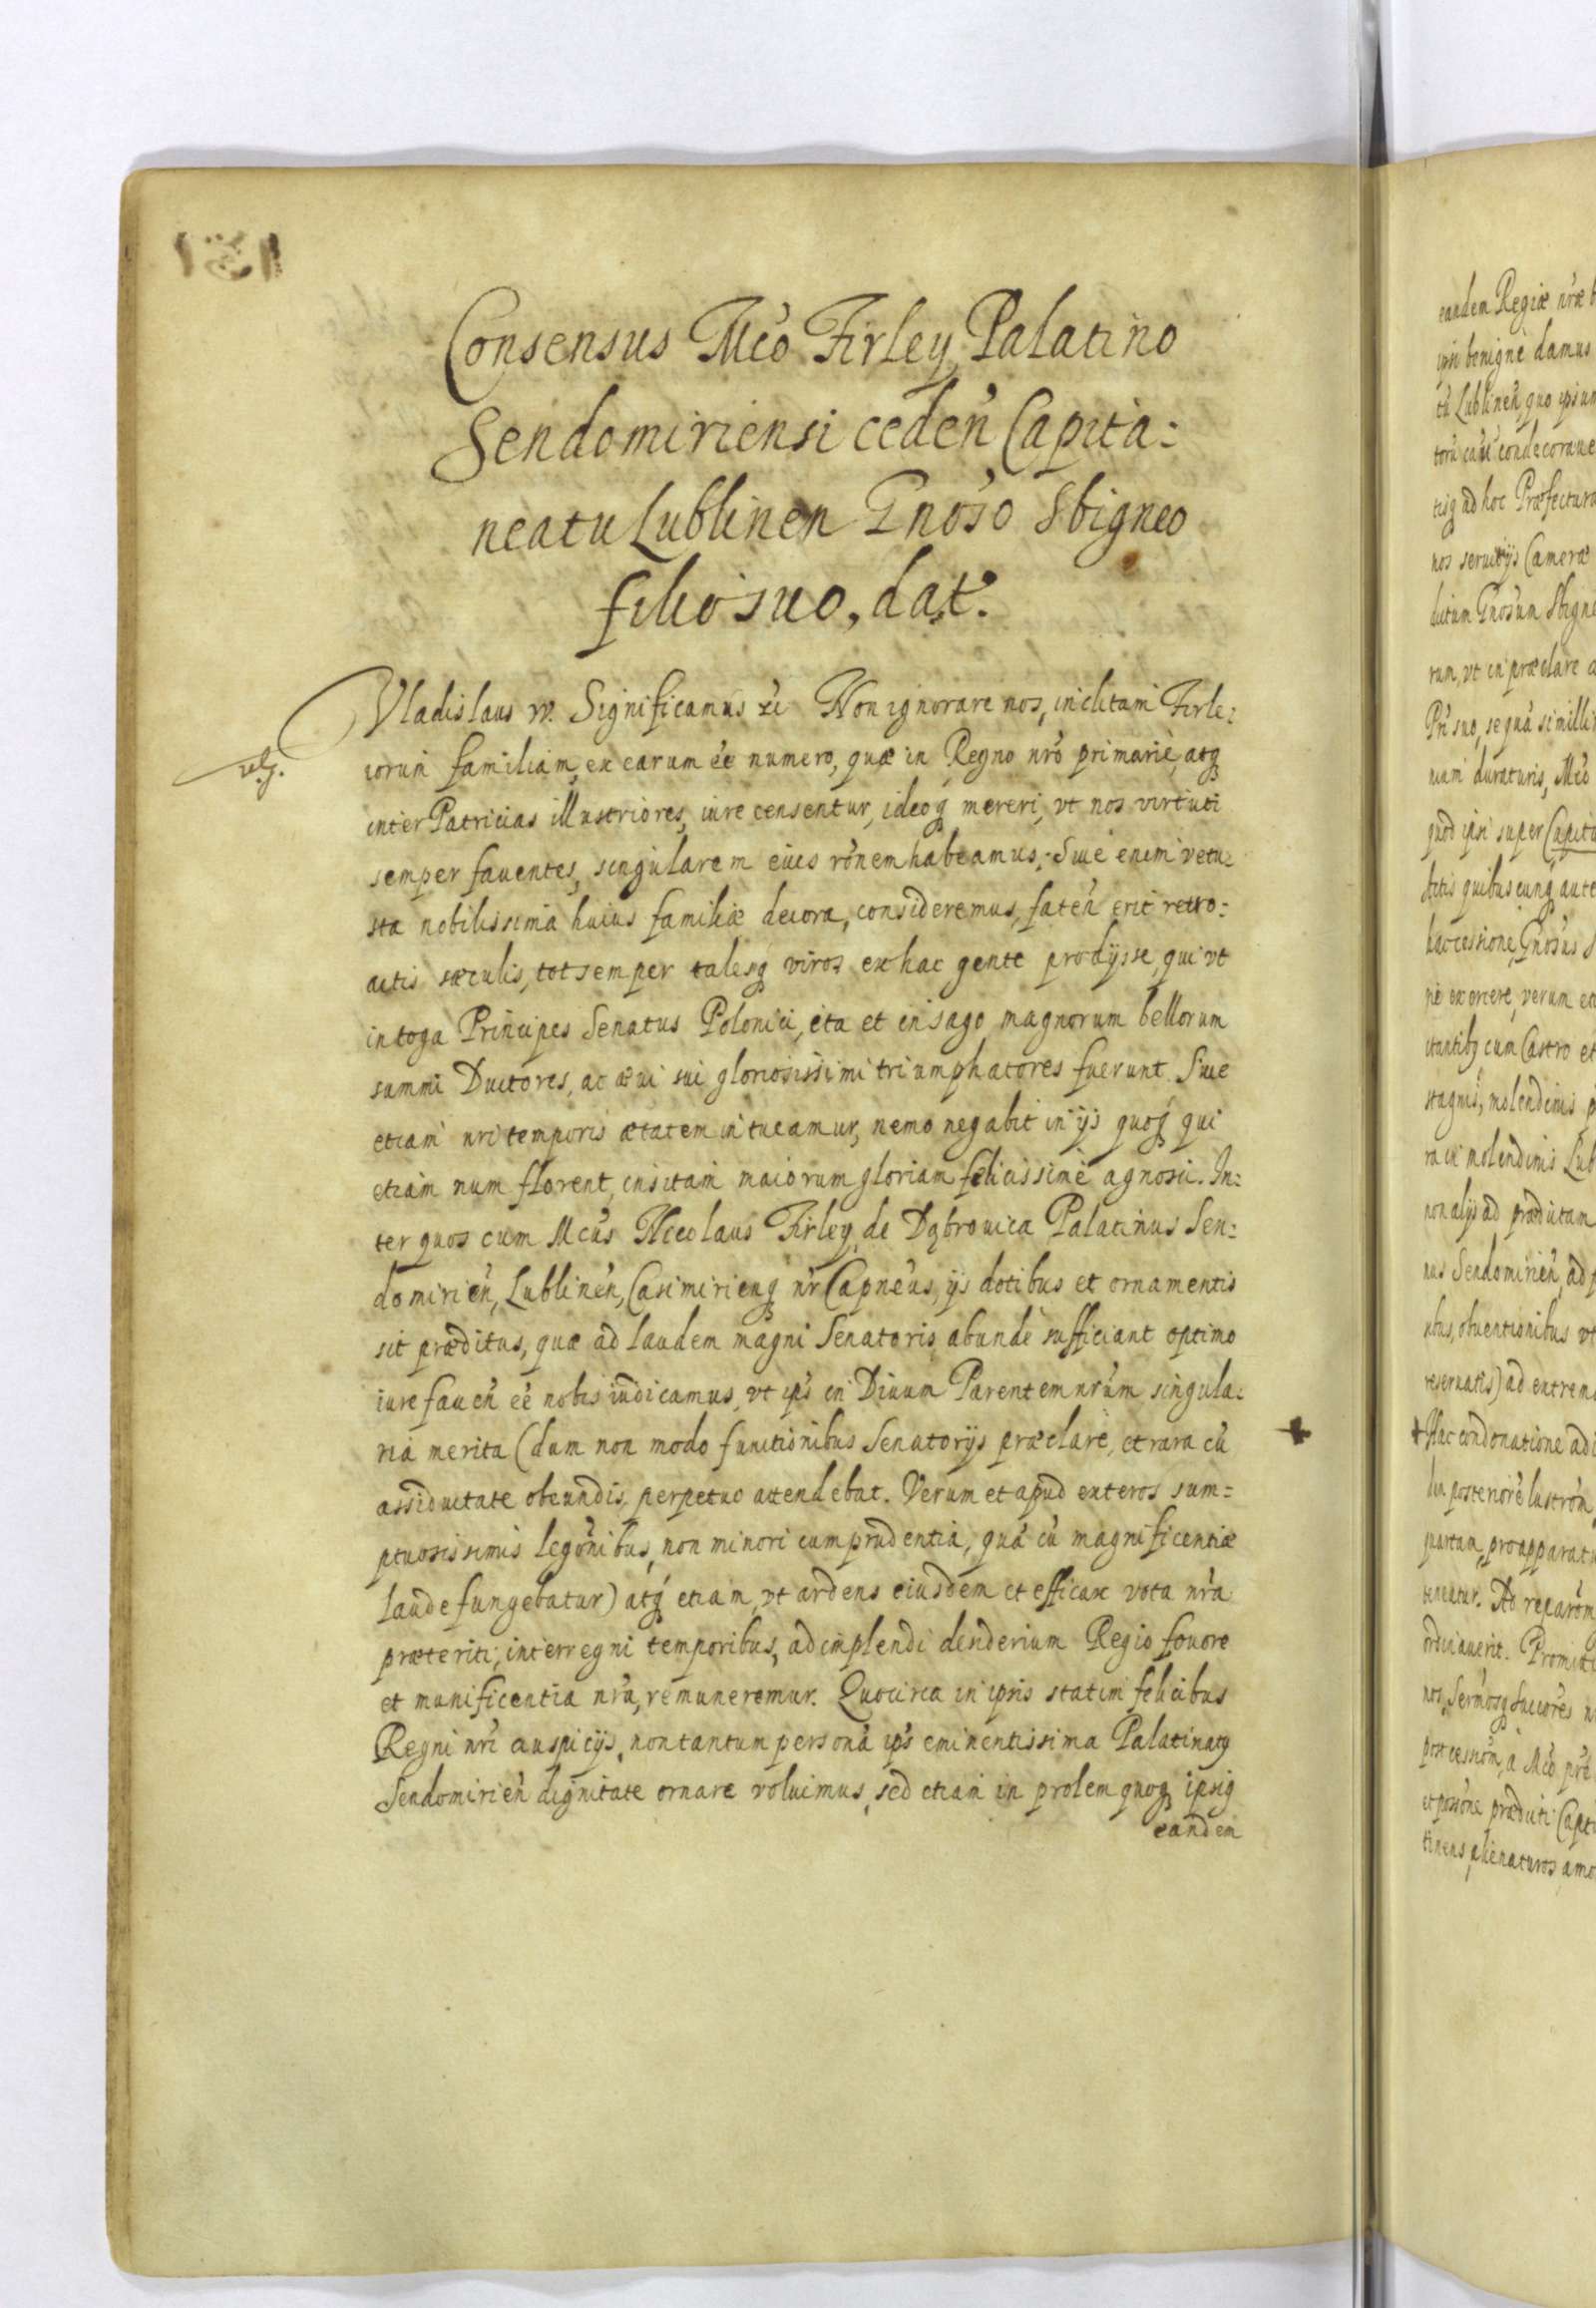 Consensus Mco Firley Palatino
Sendomiriensi ceden Capita:
neatu Lublinen Gnoso Sbigneo
filio suo, dat.
Vladislaus IV. Significamus &c Non ignorare nos, inclitam Firle:
iorum familiam, ex earum ee numero, quæ in Regno nro primariè, atq
inter Patricias illustriores, iure censentur, ideoq mereri, vt nos virtuti
semper fauentes, singularem eius ronem habeamus. Siue enim vetu:
sta nobilissima huius familiæ decora, consideremus, faten erit retro:
actis sæculis, tot semper talesq viros ex hac gente prodijsse, qui vt
in toga Principes Senatus Polonici, ita et in sago magnorum bellorum
summi Ductores, ac æui sui gloriosissimi triumphatores fuerunt. Siue
etiam nri temporis ætatem intueamur, nemo negabit in ijs quoq qui
etiam num florent, insitam maiorum gloriam felicissimè agnosci. In:
ter quos cum Mcus Nicolaus Firley de Dąbrouica Palatinus Sen:
domirien, Lublinen, Casimirienq nr Capneus, ijs dotibus et ornamentis
sit præditus, quæ ad laudem magni Senatoris abundè sufficiant optimo
iure fauen ee nobis iudicamus, vt ips in Diuum Parentem nrum singula:
ria merita (dum non modo functionibus Senatorijs præclarè, et rara cu
assiduitate obeundis, perpetuo attendebat. Verum et apud exteros sum=
ptuosissimis legonibus, non minori cum prudentia, quá cu magnificentiæ
laude fungebatur) atq etiam, vt ardens eiusdem et efficax vota nra
præteriti, interregni temporibus, adimplendi desiderium Regio fouore
et munificentia nra, remuneremur. Quocirca in ipsis statim felicibus
Regni nri auspicijs, non tantum personà ips eminentissima Palatinatq
Sendomirien dignitate ornare voluimus, sed etiam in prolem quoq ipsiq
eandem
eandem Regiæ nræ b
ipsi benignè damus
tu Lublinen, quo ipsum
tisq ad hoc Præfectura
nos seruitijs Cameræ
dictum Gnosum Sbigne
rum, vt in præclare a
Pri suo, se quá simillim
niam duraturis, Mco
quod ipsi super Capita
hac cessione, Gnosus S
nè exercere, verum et
itantibq cum Castro et
stagnis, molendinis p
ra in molendinis Lub
non alijs ad prædictam
nus Sendomirien, ad p
obuentionibus vt
reseruatis) ad extrem
Hac condonatione adi
posteriore lustron
quartam, pro apparatu
teneatur. Ad reparon
ordinauerit. Promitti
nos, Sermosq Succores n
post cession, à Mco præ
et possone prædicti Capt
alienaturos, amo